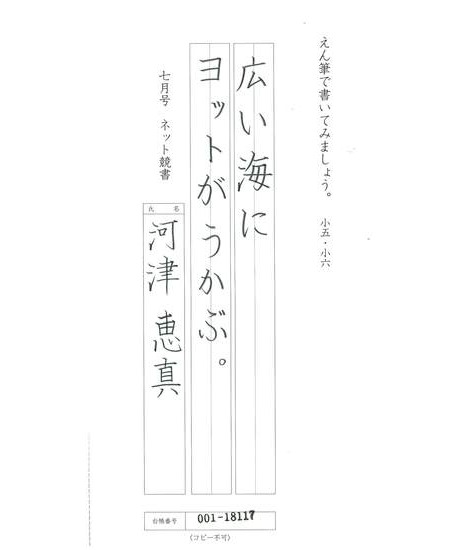 えん筆で書いてみましょう。 小五・小六
広い海に
ヨットがうかぶ。
七月号 ネット競書
氏名
河津 恵真
台帳番号 001-18117
(コピー不可)